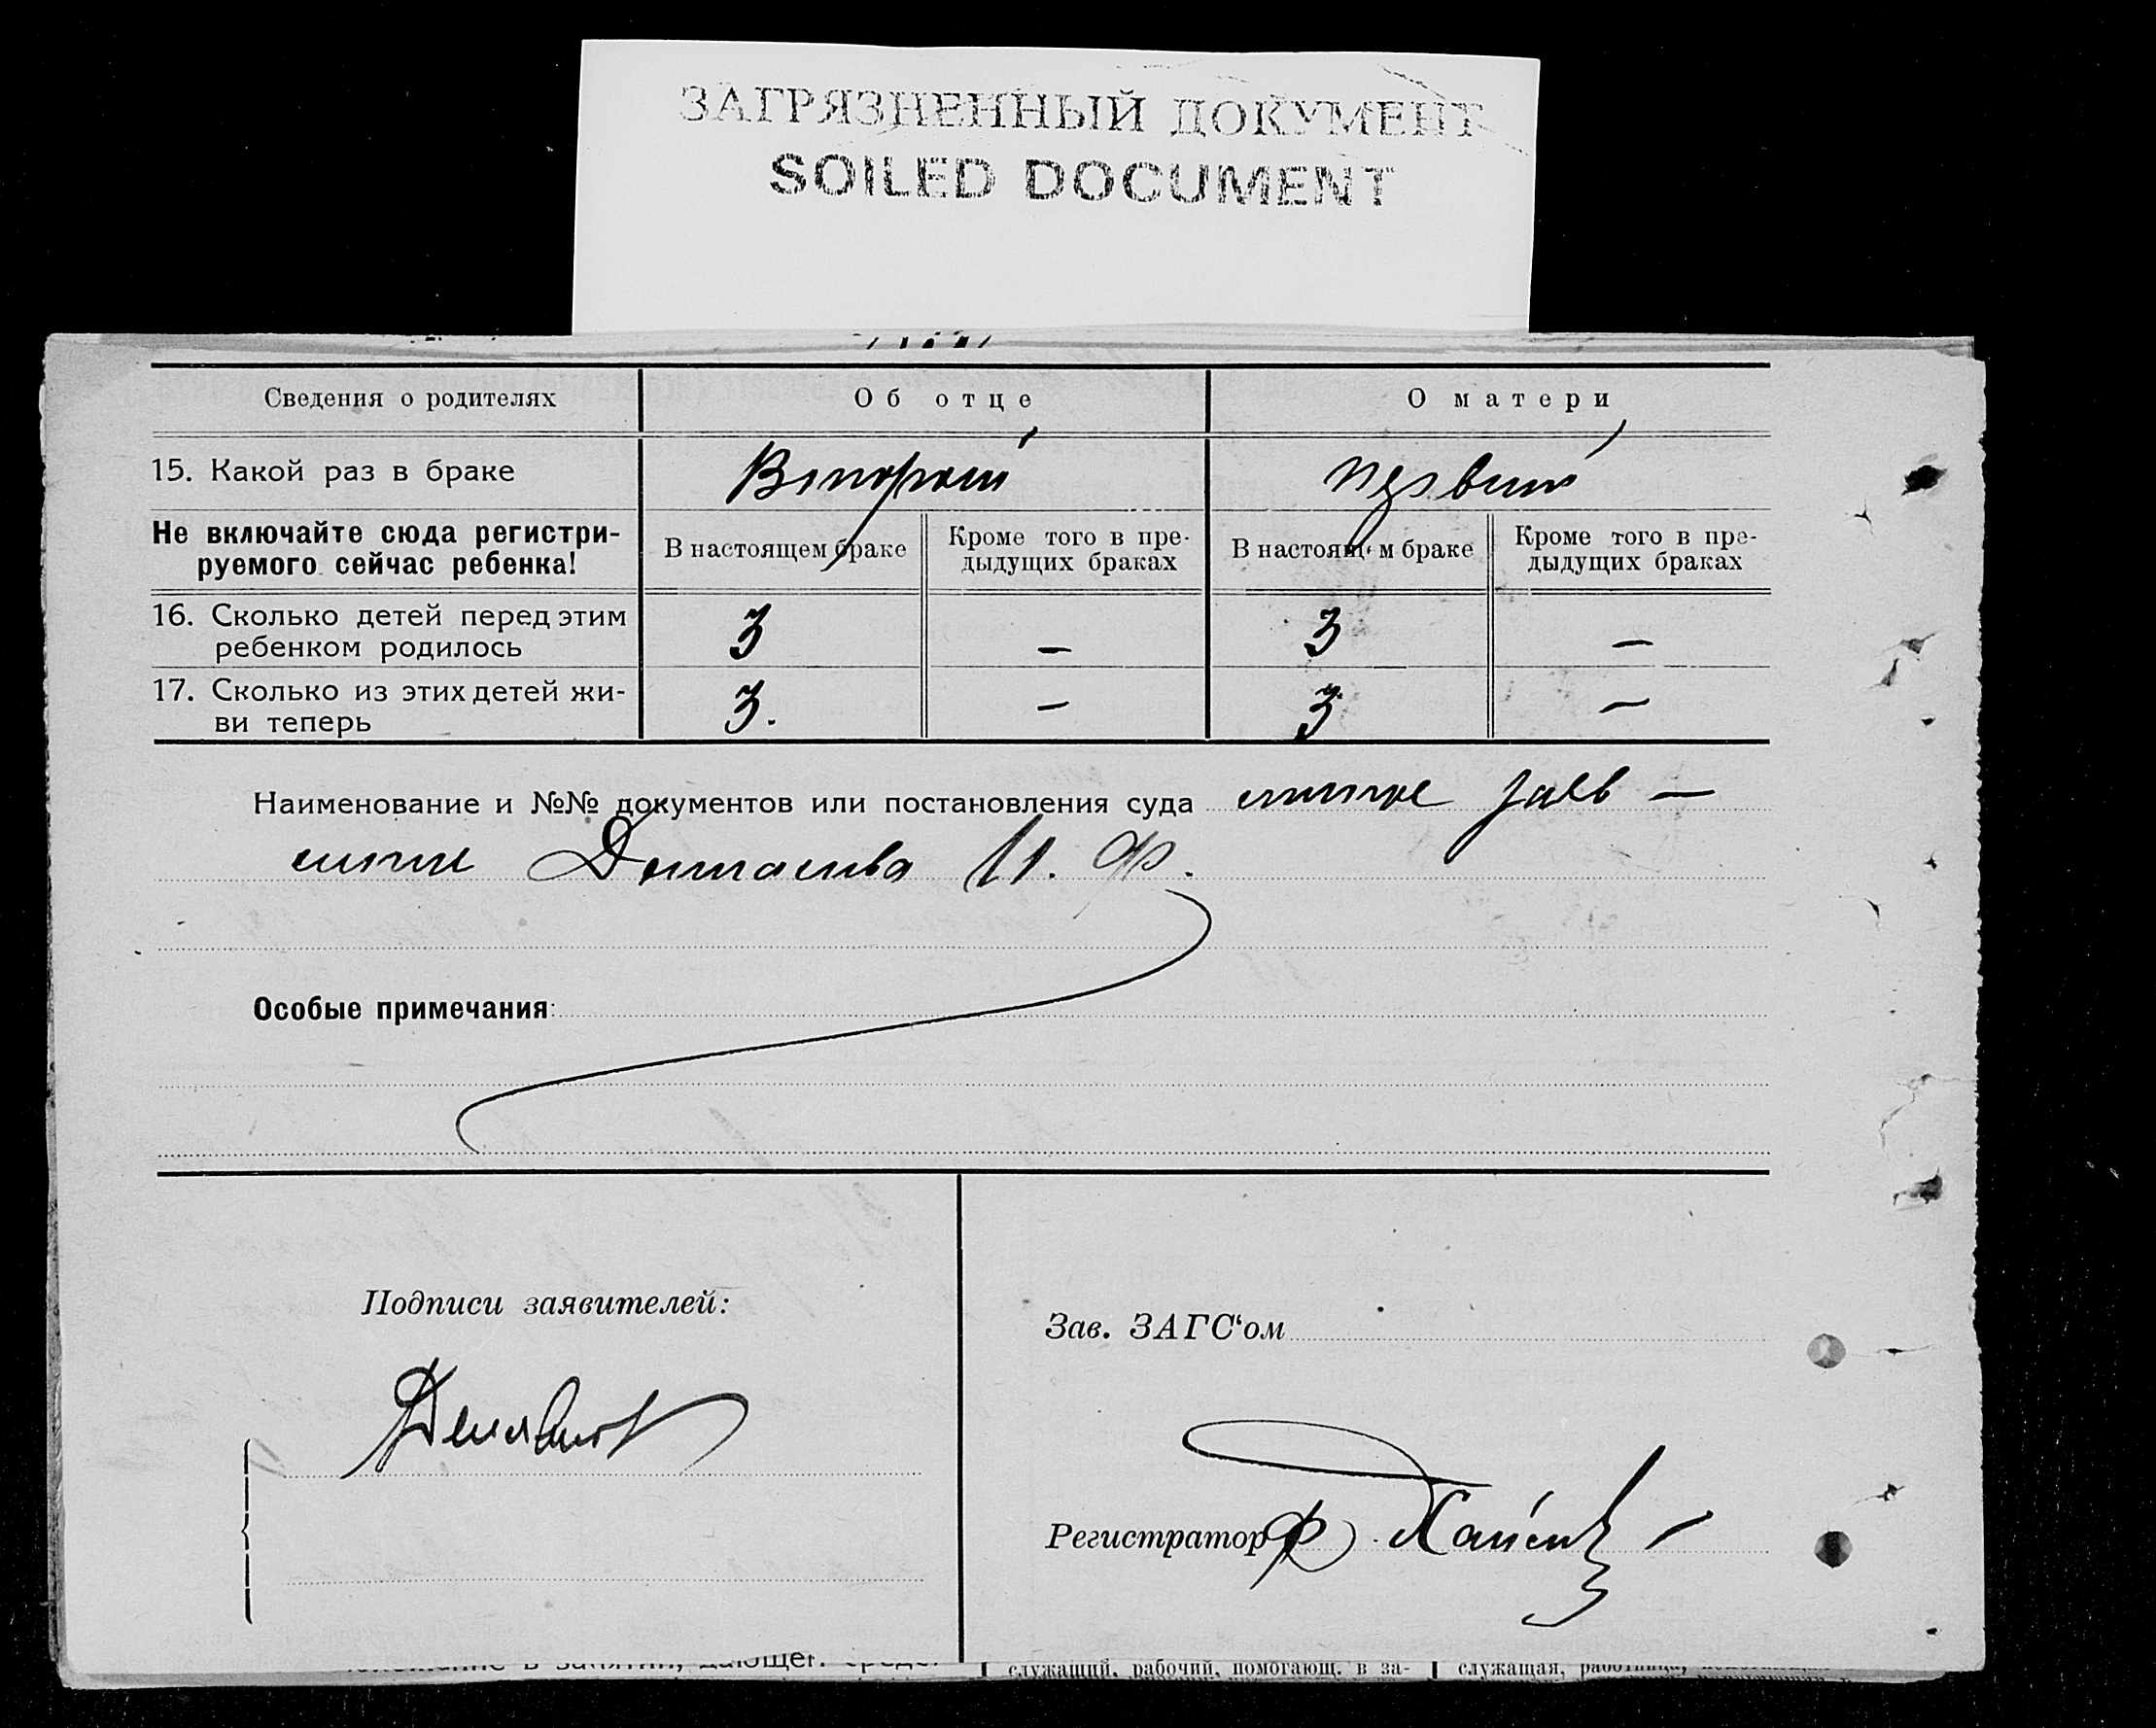 ЗАГРЯЗНЕННЫЙ ДОКУМЕНТ
SOILED DOCUMENT
Сведения о родителях
Об отце
О матери
15. Какой раз в браке
Второй
первый
Не включайте сюда регистри-
руемого сейчас ребенка!
В настоящем браке
Кроме того в пре-
дыдущих браках
В настоящем браке
Кроме того в пре-
дыдущих браках
16. Сколько детей перед этим
ребенком родилось
3
—
3
—
17. Сколько из этих детей жи-
ви теперь
3.
—
3
—
Наименование и №№ документов или постановления суда
Особые примечания:
Подписи заявителей:
Зав. ЗАГС‘ом
Регистратор
служащий, рабочий, помогающ. в за-
служащая, работница,